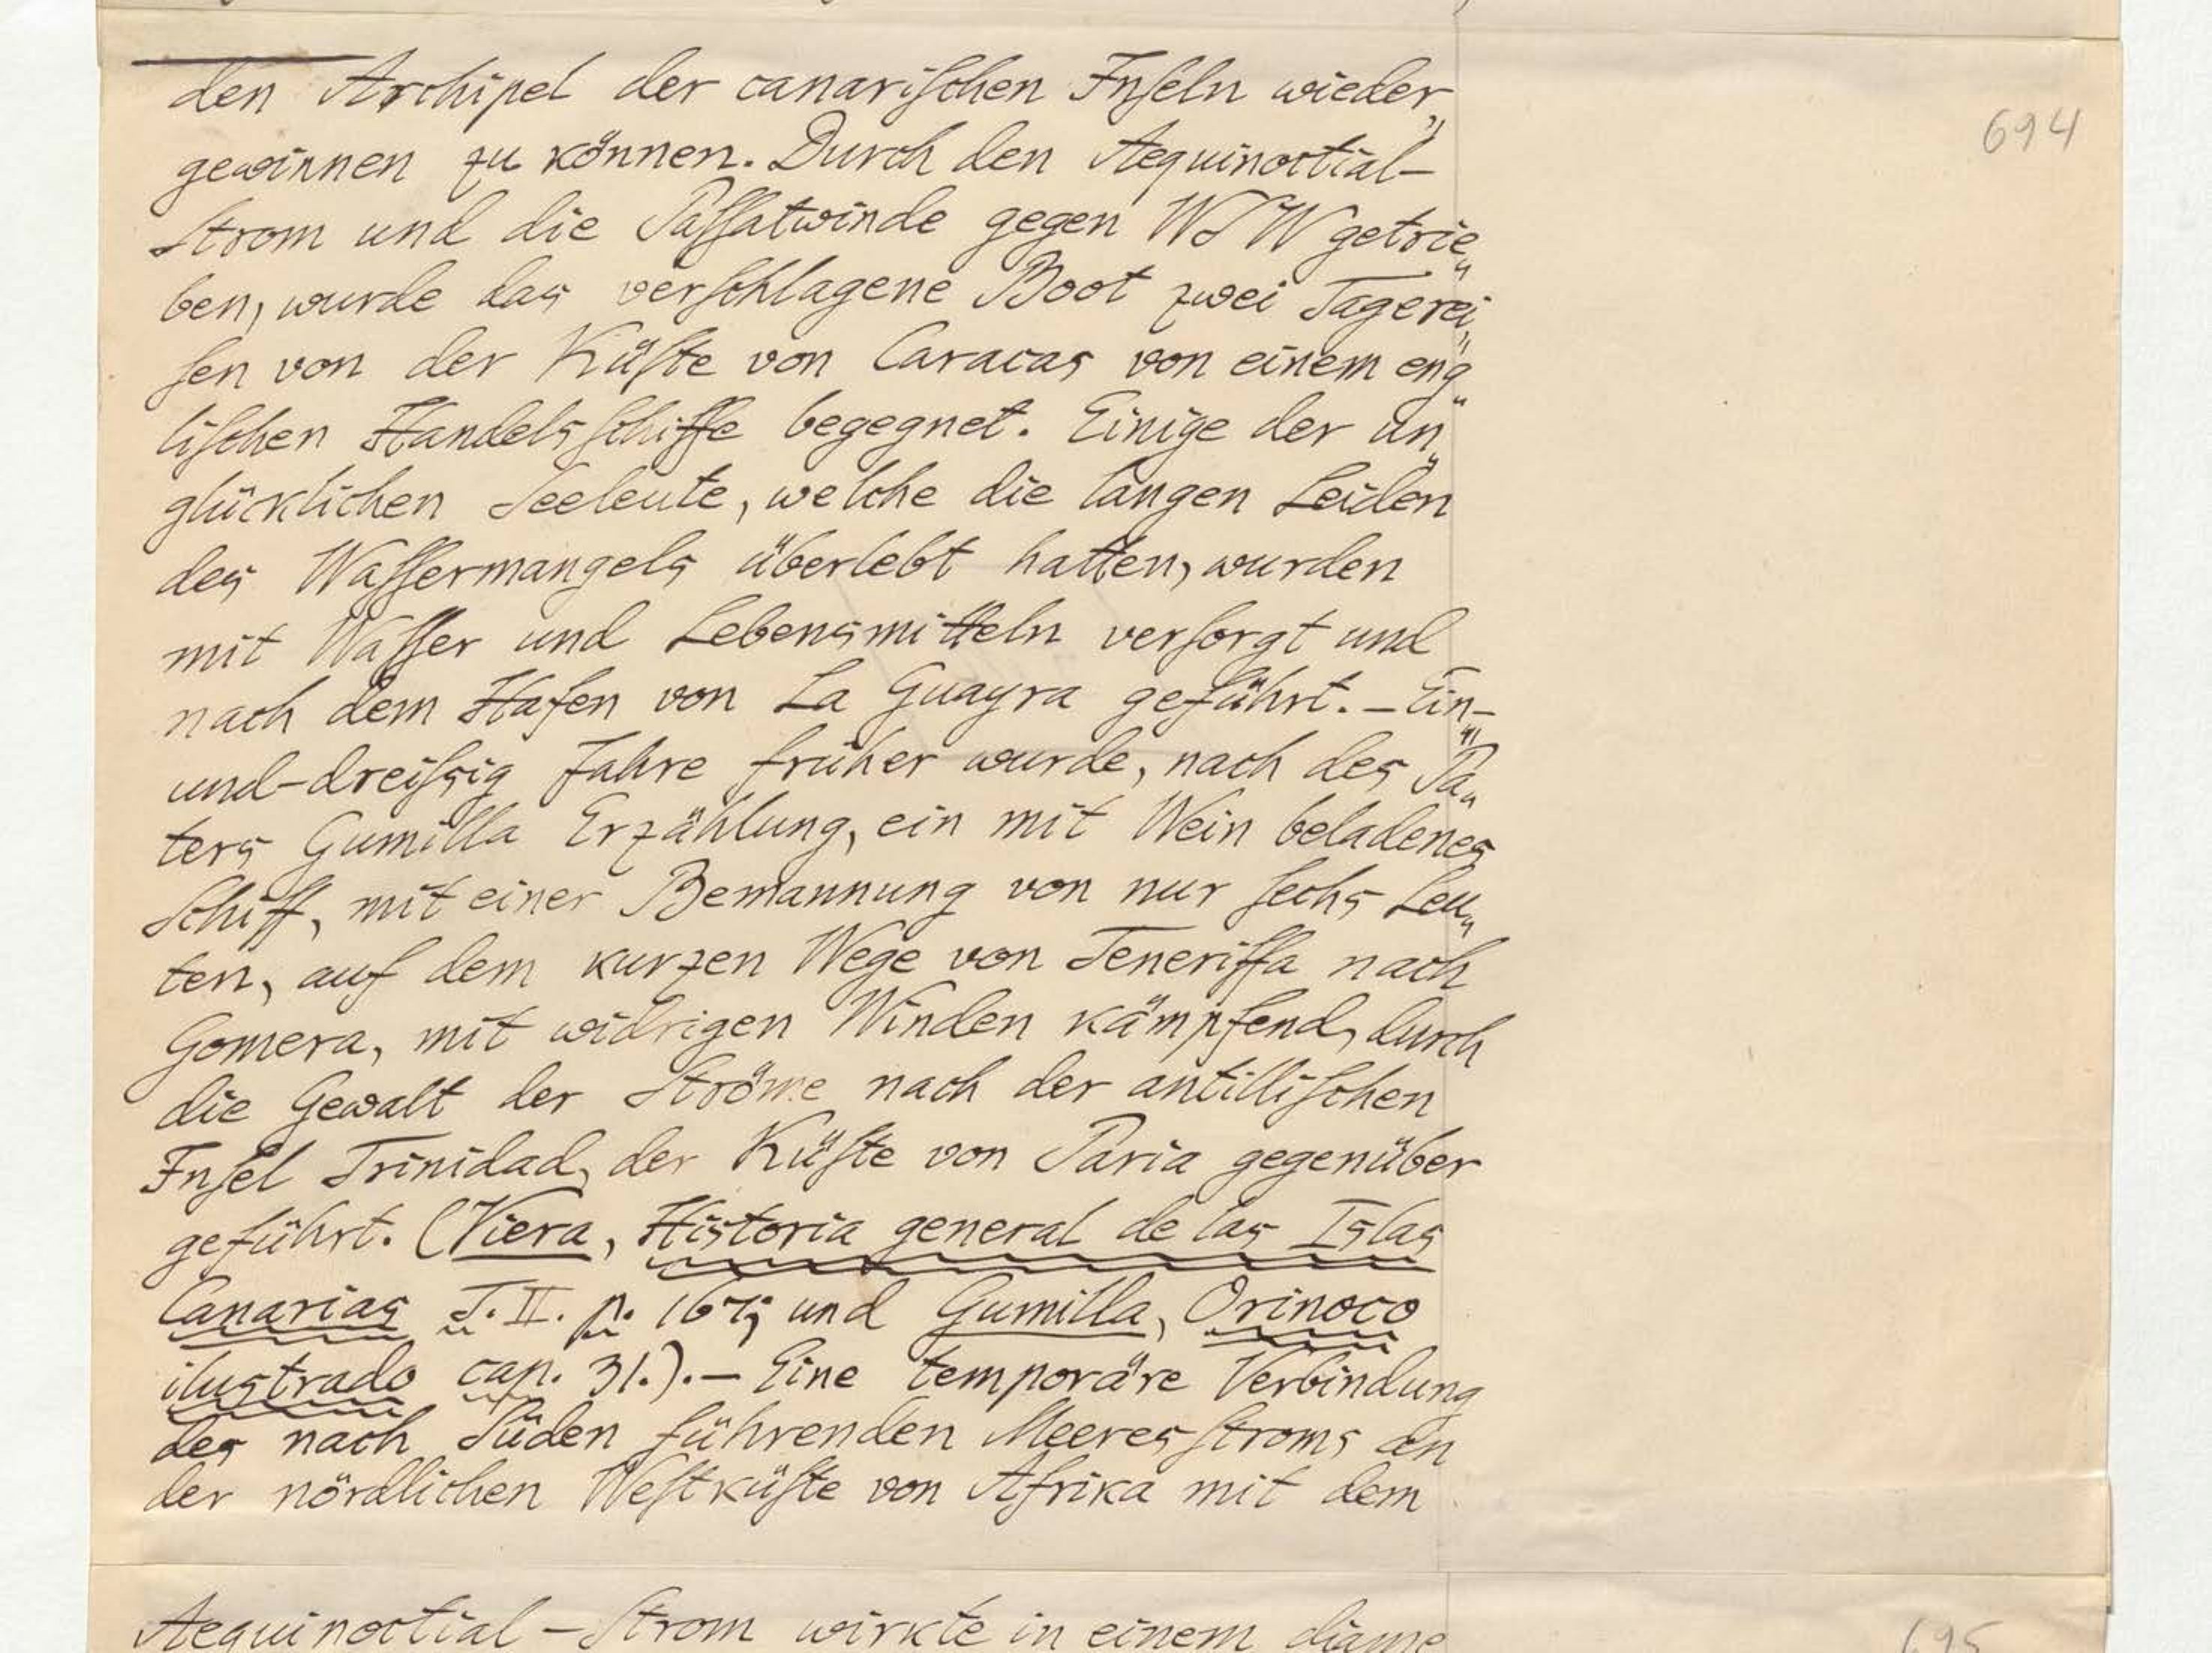 den Archipel der canarischen Inseln wieder„
694
gewinnen zu können. Durch den Aequinoctial-
Strom und die Passatwinde gegen WSW getrie„
ben, wurde das verschlagene Boot zwei Tagerei„
sen von der Küste von Caracas von einem eng„
lischen Handelsschiffe begegnet. Einige der un„
glücklichen Seeleute, welche die langen Leiden
des Wassermangels überlebt hatten, wurden
mit Wasser und Lebensmitteln versorgt und
nach dem Hafen von La Guayra geführt. – Ein-
und-dreissig Jahre früher wurde, nach des Pa„
ters Gumilla Erzählung, ein mit Wein beladenes
Schiff, mit einer Bemannung von nur sechs Leu„
ten, auf dem kurzen Wege von Teneriffa nach
Gomera, mit widrigen Winden kämpfend, durch
die Gewalt der Ströme nach der antillischen
Insel Trinidad, der Küste von Paria gegenüber
geführt. (Viera, Historia general de las Islas
Canarias T. II. p. 167; und Gumilla, Orinoco
ilustrado cap. 31.). – Eine temporäre Verbindung
des nach Süden führenden Meeresstroms an
der nördlichen Westküste von Afrika mit dem
Aequinoctial-Strom wirkte in einem diame
695